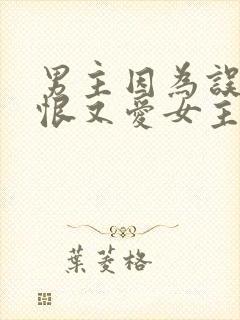 男主因為誤
恨又愛女主
葉菱格